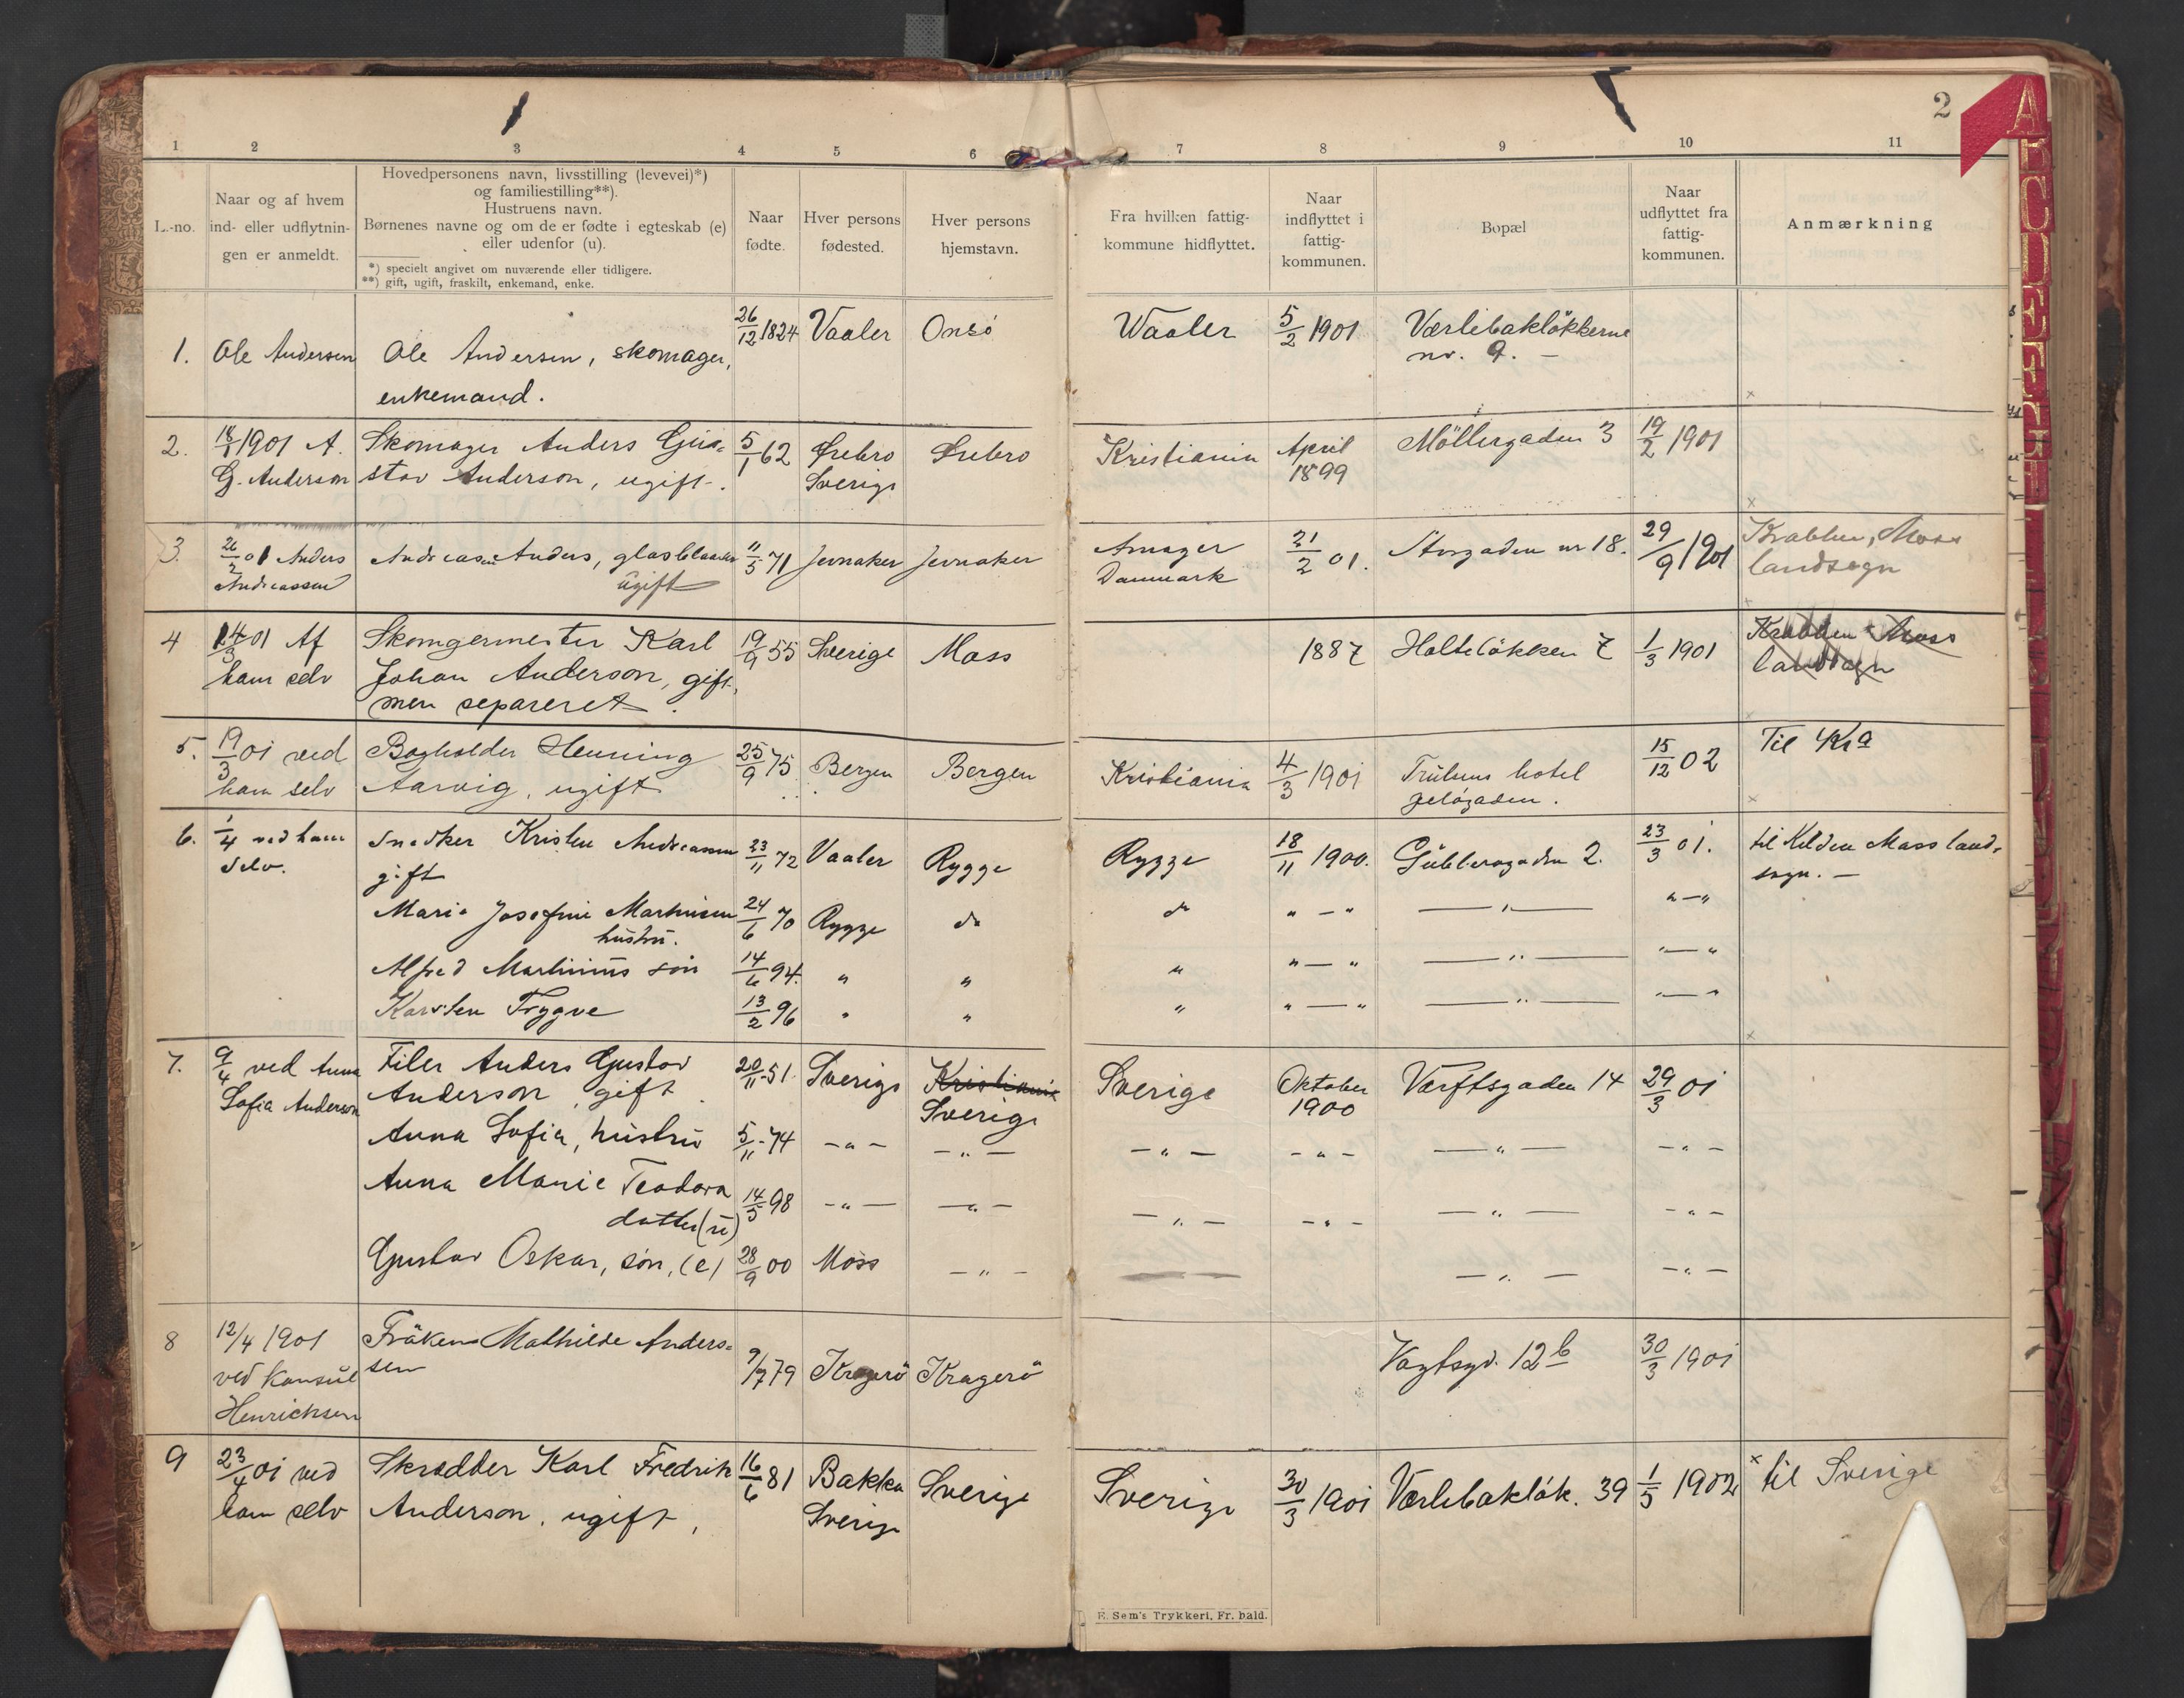 2
1 2 3 4 5 6 7 8 9 10 11
L.-no.
Naar og af hvem
ind- eller udflytnin-
gen er anmeldt.
Hovedpersonens navn, livsstilling (levevei)*)
og familiestilling**).
Hustruens navn.
Børnenes navne og om de er fødte i egteskab (e)
eller udenfor (u).
*) specielt angivet om nuværende eller tidligere.
**) gift, ugift, fraskilt, enkemand, enke.
Naar
fødte.
Hver persons
fødested.
Hver persons
hjemstavn.
Fra hvilken fattig-
kommune hidflyttet.
Naar
indflyttet i
fattig-
kommunen.
Bopæl
Naar
udflyttet fra
fattig-
kommunen.
Anmærkning
A
B
C
D
E
F
1. Ole Andersen Ole Andersen, skomager, 26/12 1824 Vaaler Onsö Waaler 5/2 1901 Værlebaklökkerne
enkemand. nr. 9. —
2. 18/1 1901 A. Skomager Anders Gu- 5/1 62 Ørebro Ørebro Kristiania April Möllergaden 3 19/2 1901
G. Anderson stav Anderson, ugift. Sverige 1899
3. 26/2 01 Anders Andreasen Anders, glasblaaser 11/5 71 Jevnaker Jevnaker Amager 21/2 01. Storgaden nr 18. 29/9 1901 Krabben, Moss
Andreassen ugift Danmark landsogn
4 14/3 01 Af Skomgermester Karl 19/9 55 Sverige Moss 1887 Holtelökken 7 1/3 1901 Krabben Moss
ham selv Johan Anderson, gift, landsogn
men separeret.
5. 19/3 01 ved Bogholder Henning 25/9 75 Bergen Bergen Kristiania 4/3 1901 Trulsens hotel 15/12 02 Til Kra
ham selv Aarvig, ugift geløgaden.
6. 1/4 ved ham Snedker Kristen Andreassen 23/11 72 Vaaler Rygge Rygge 18/11 1900. Gublersgaden 2. 23/3 01. til Kilden Moss land-
selv. gift sogn. —
Marie Josefine Martinsen 24/6 70 Rygge do do " — " — " — " — "
hustru.
Alfred Martinius sön 14/6 94. " " " " — " — " — " — "
Karsten Trygve 13/2 96 " " " " — " — " — " — "
7. 9/4 ved Anna Filer Anders Gustav 20/11 51 Sverige Kristiania Sverige Oktober Værftsgaden 14 29/3 01
Sofia Anderson Anderson, gift. Sverige 1900
Anna Sofia, hustru 5/11 74 — " — — " — — " — — " — — " — — " —
Anna Marie Teodora 14/5 98 — " — — " — — " — — " — — " — — " —
datter (u)
Gustav Oskar, sön, (e) 28/9 00 Moss — " — — — " — — " —
8 12/4 1901 Fröken Mathilde Anders- 9/7 79 Kragerö Kragerö Vagtsgd. 12 b 30/3 1901
ved konsul sen
Henrichsen
9 23/4 01 ved Skrædder Karl Fredrik 16/6 81 Bakka Sverige Sverige 30/3 1901 Værlebaklök. 39 1/5 1902 x til Sverige
ham selv Anderson, ugift, Sverige
E. Sem's Trykkeri, Fr. hald.